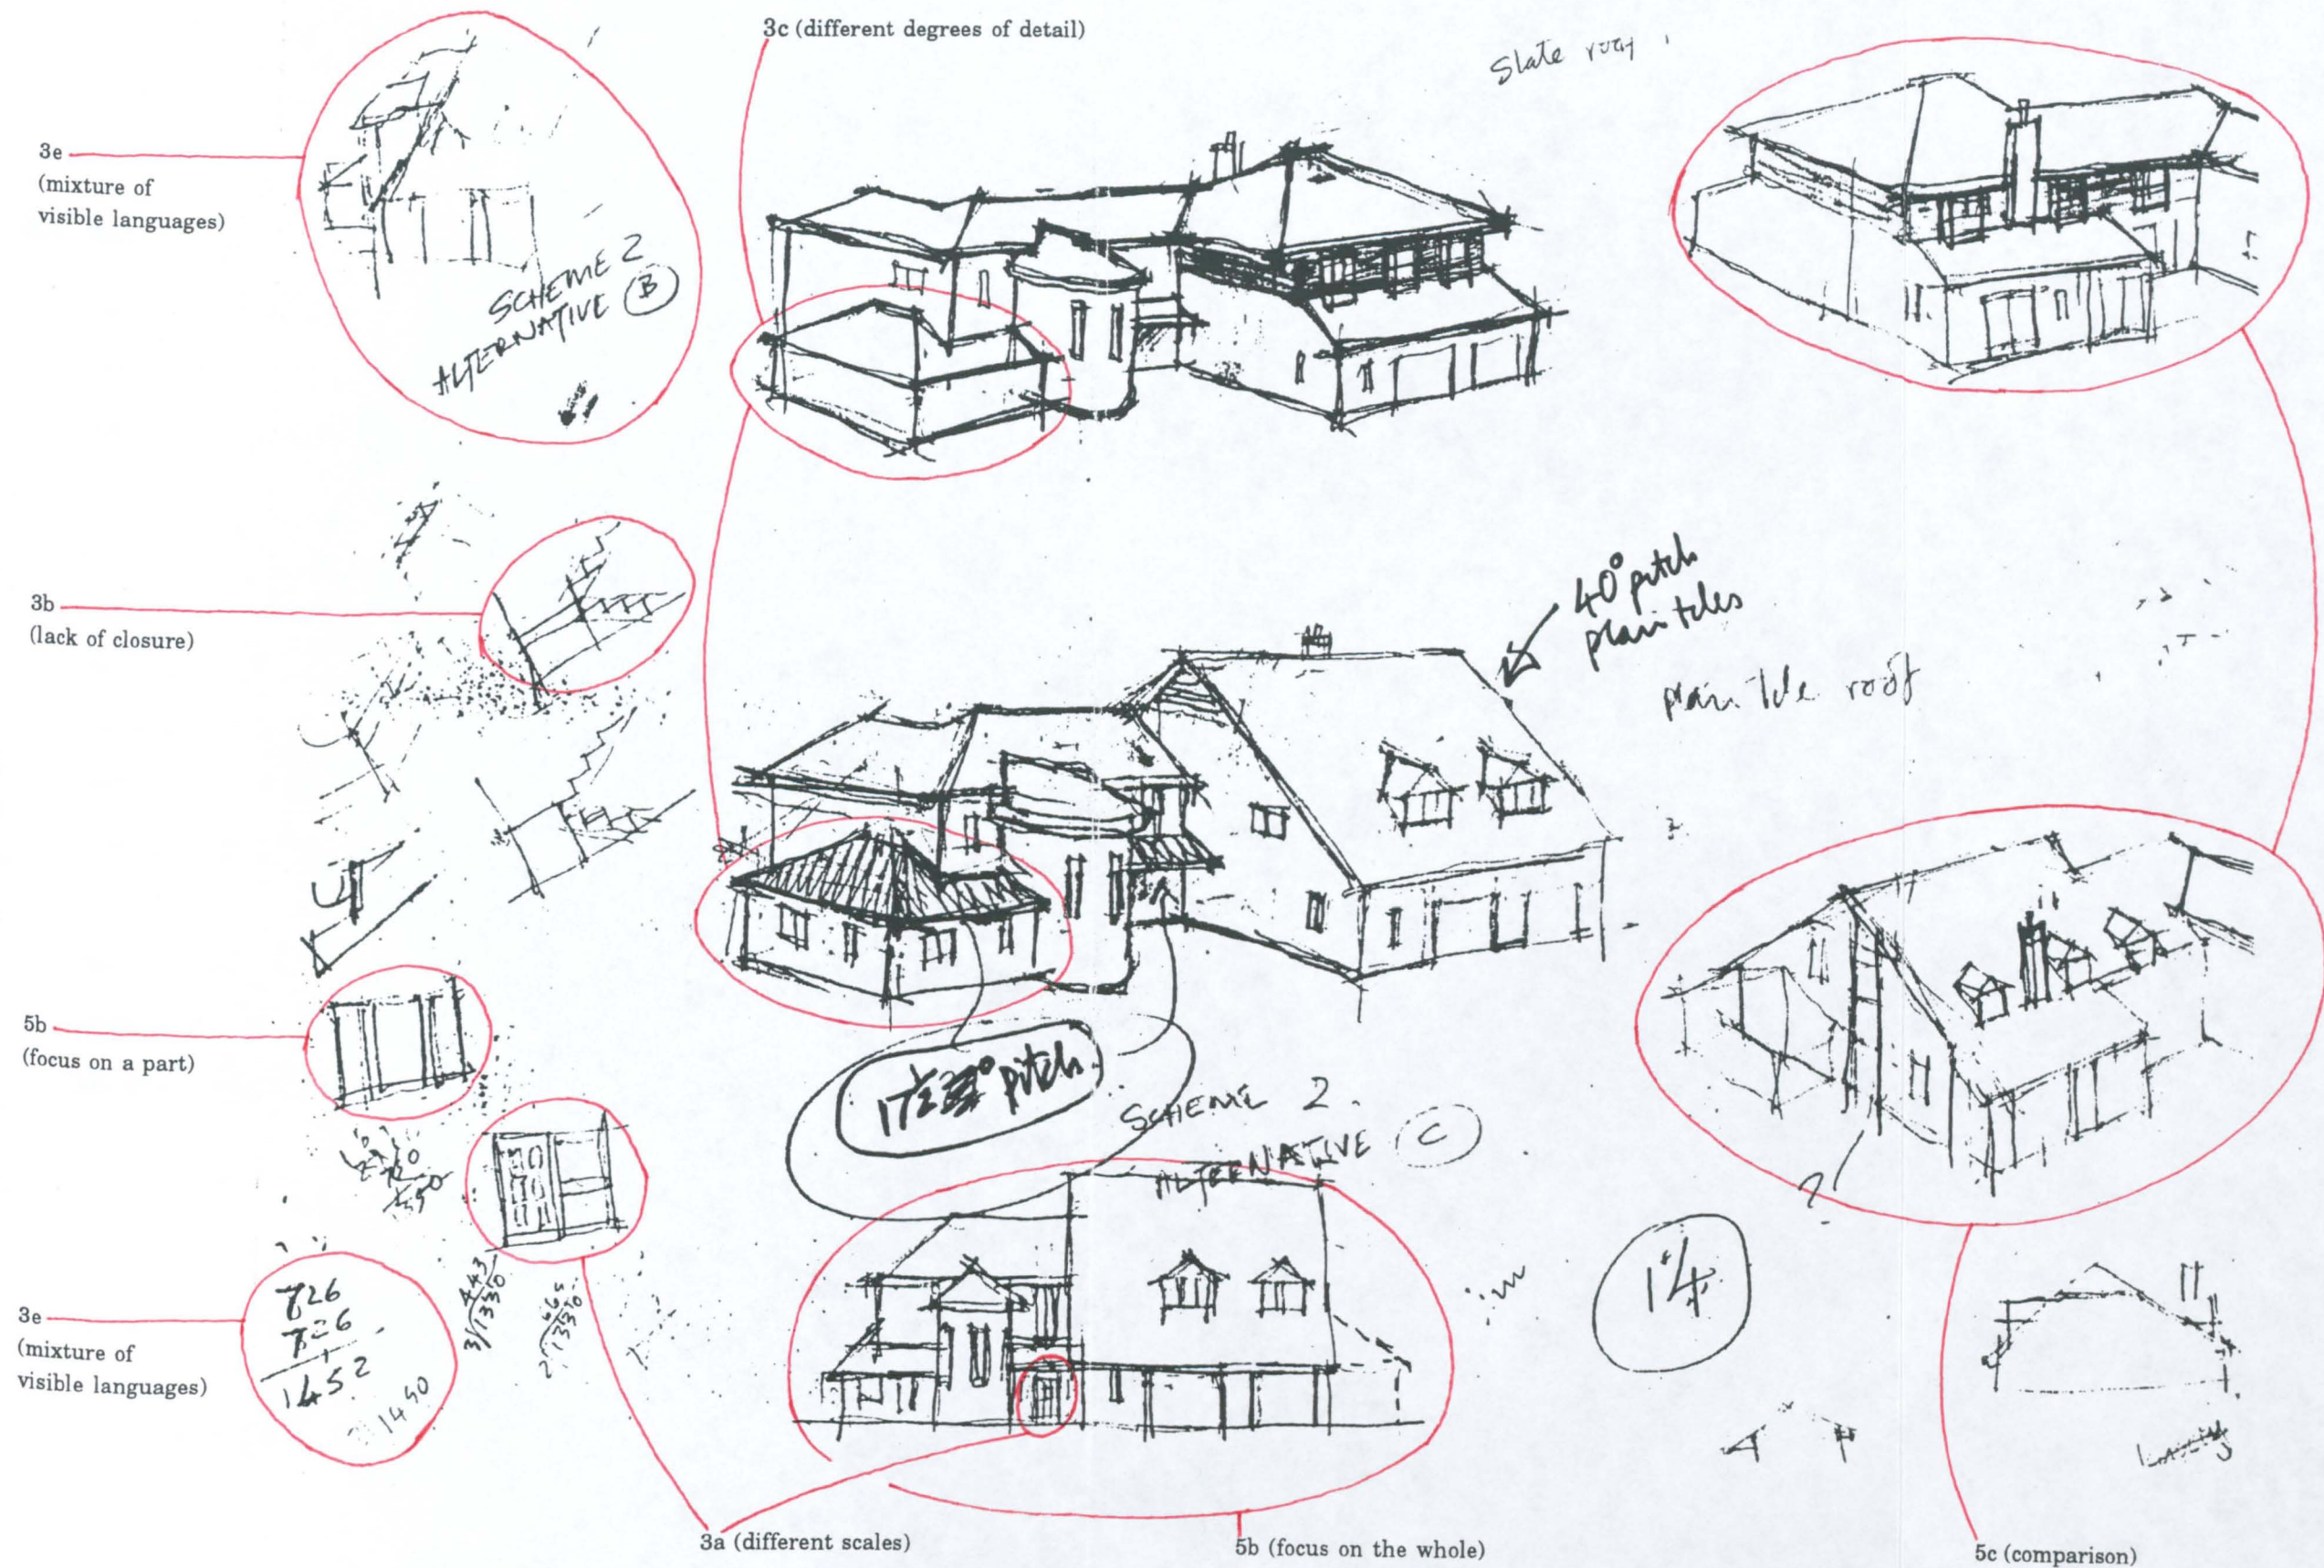 3c (different degrees of detail)
Slate roof
3e
(mixture of
visible languages)
SCHEME 2
ALTERNATIVE B
40° pitch
plain tiles
3b
(lack of closure)
plain tile roof
5b
(focus on a part)
17½° pitch
SCHEME 2.
ALTERNATIVE C
14
3e
(mixture of
visible languages)
726
726
1452
1490
443
3/1330
665
2/1330
3a (different scales)
5b (focus on the whole)
5c (comparison)